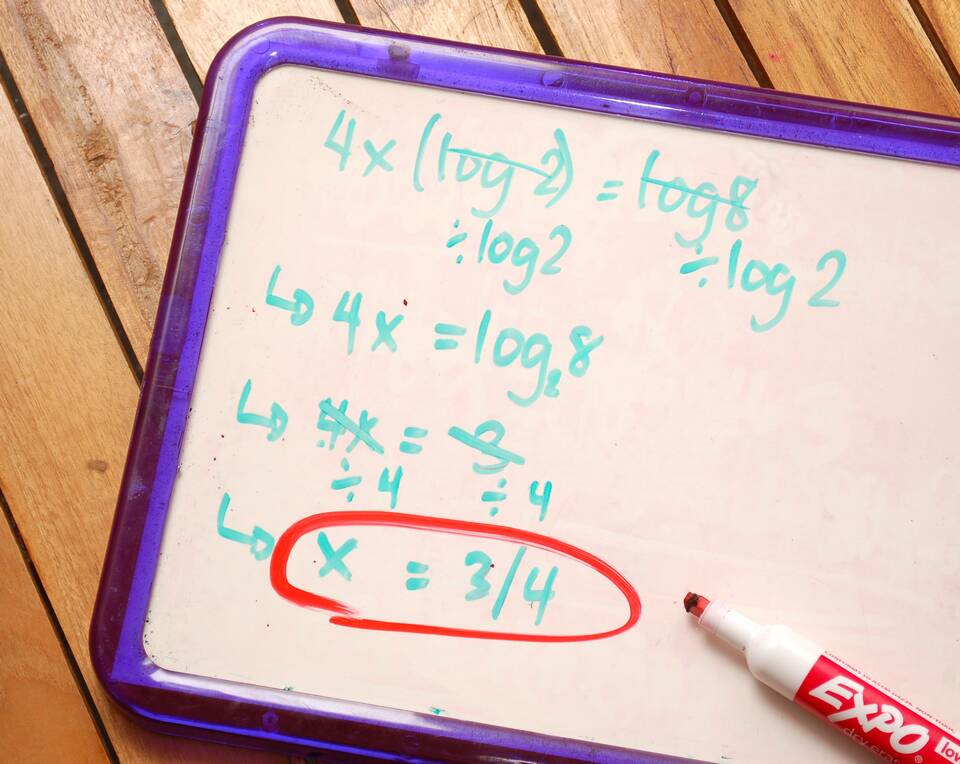 4x (log 2) = log 8
÷ log 2 ÷ log 2
↳ 4x = log₂8
↳ 4x = 3
÷ 4 ÷ 4
↳ x = 3/4
EXPO®
dry eras
low